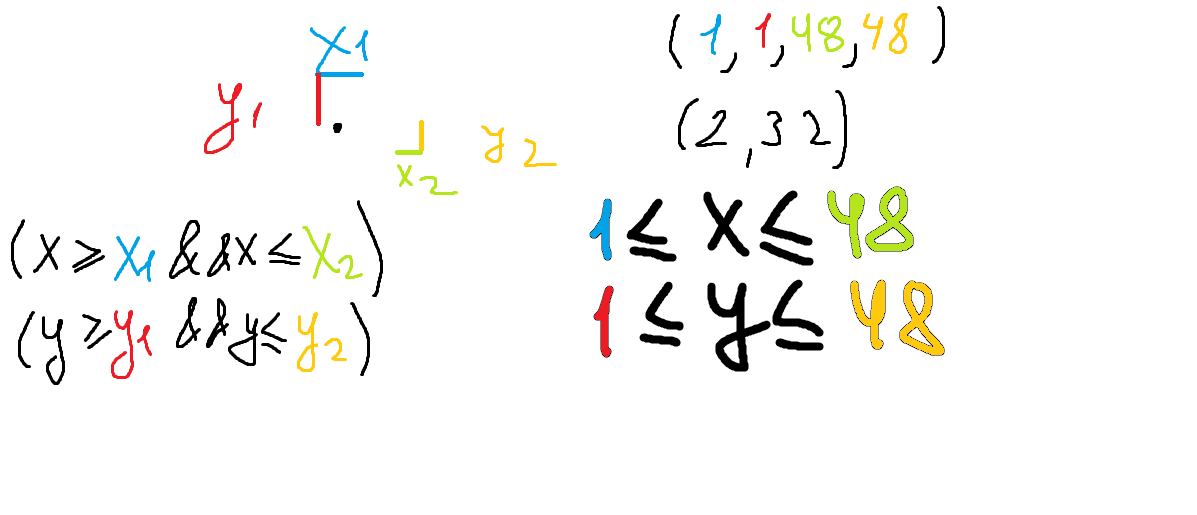 x1
y1
y2
x2
(x ≥ x1 && x ≤ x2)
(y ≥ y1 && y ≤ y2)
(1, 1, 48, 48)
(2, 32)
1 ≤ x ≤ 48
1 ≤ y ≤ 48